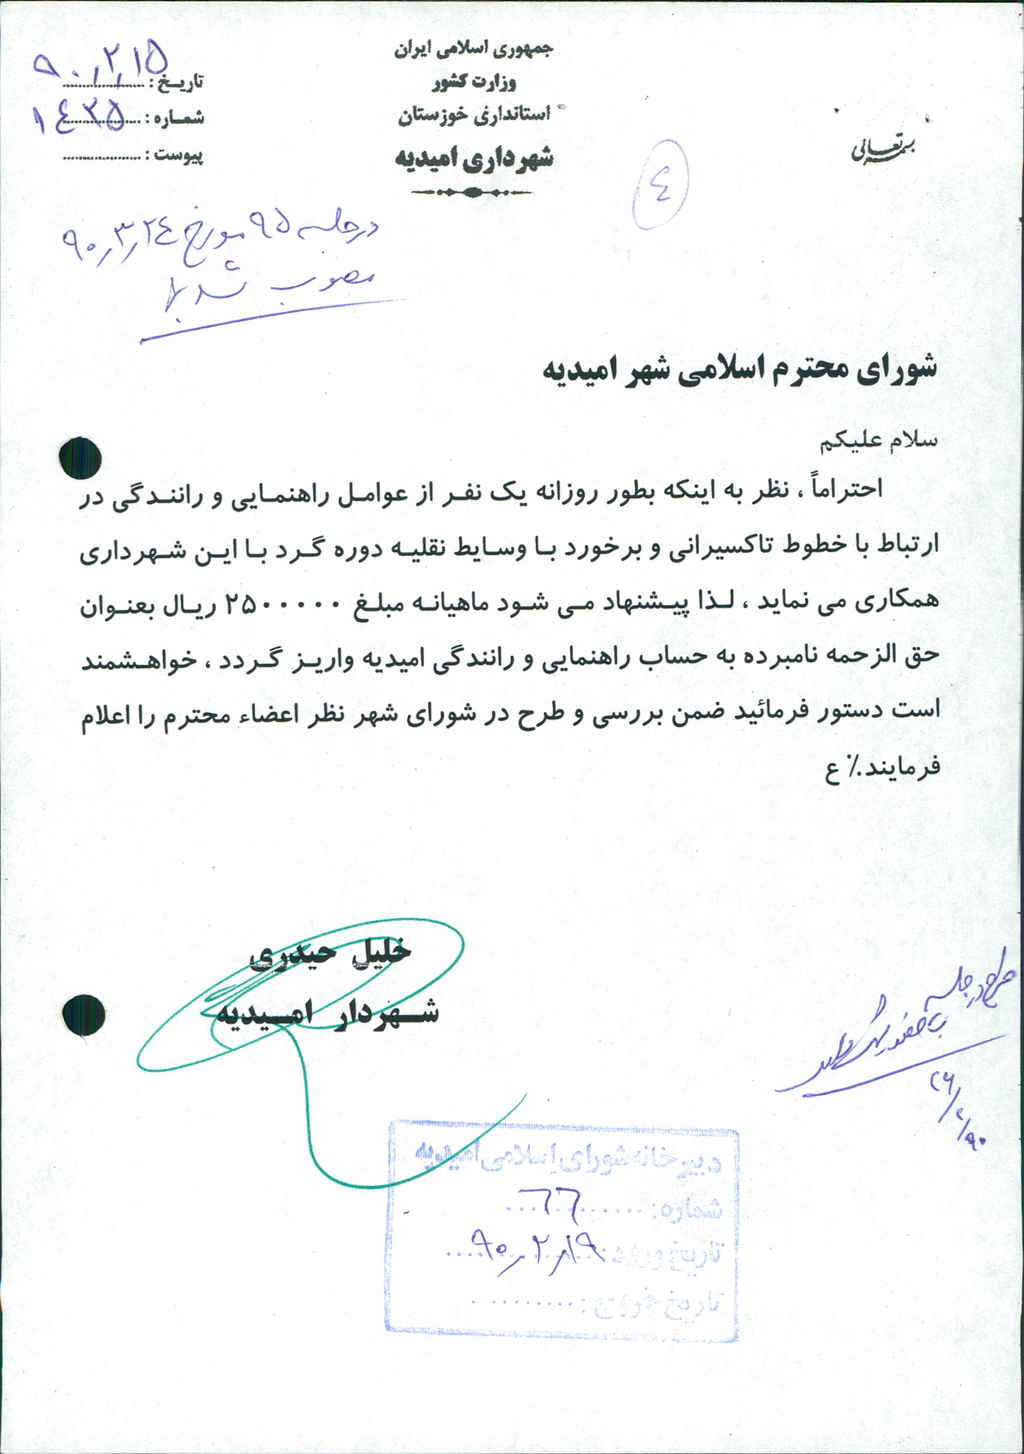 بسمه تعالی
جمهوری اسلامی ایران
وزارت کشور
استانداری خوزستان
شهرداری امیدیه
تاریخ : ۹۰٫۲٫۱۵
شماره : ۱۴۳۵
پیوست :
۴
در جلسه ۹۵ مورخ ۹۰٫۳٫۲۴
مصوب شد
شورای محترم اسلامی شهر امیدیه
سلام علیکم
احتراماً ، نظر به اینکه بطور روزانه یک نفر از عوامل راهنمایی و رانندگی در
ارتباط با خطوط تاکسیرانی و برخورد با وسایط نقلیه دوره گرد با این شهرداری
همکاری می نماید ، لذا پیشنهاد می شود ماهیانه مبلغ ۲۵۰۰۰۰۰ ریال بعنوان
حق الزحمه نامبرده به حساب راهنمایی و رانندگی امیدیه واریز گردد ، خواهشمند
است دستور فرمائید ضمن بررسی و طرح در شورای شهر نظر اعضاء محترم را اعلام
فرمایند.٪ ع
خلیل حیدری
شهردار امیدیه
طرح در جلسه
۹۰/۲/۲۶
دبیرخانه شورای اسلامی امیدیه
شماره: ۶۶
تاریخ ورود: ۹۰٫۲٫۱۹
تاریخ خروج: